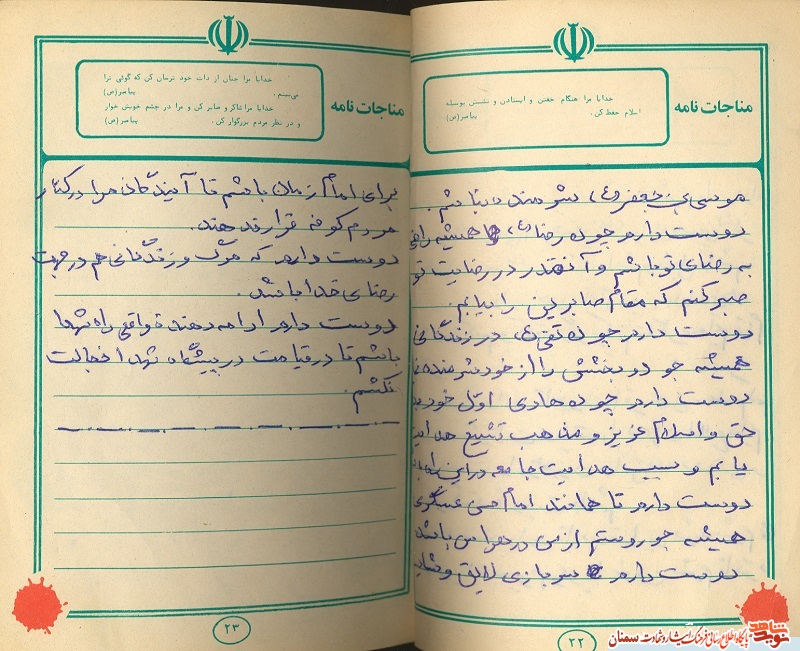 مناجات نامه
خدایا مرا هنگام خفتن و ایستادن و نشستن بوسیله
اسلام حفظ کن.
پیامبر(ص)
موسی بن جعفر (ع) شرمنده نباشم.
دوست دارم چون رضا (ع) همیشه راضی
به رضای تو باشم و آنقدر در رضایت تو
صبر کنم که مقام صابرین را بیابم.
دوست دارم چون تقی (ع) در زندگانی
همیشه جود و بخشش را از خود شرمنده
دوست دارم چون هادی اول خود
حق و اسلام عزیز و مذهب تشیع هدایت
یابم و سبب هدایت جامعه در این راه
دوست دارم تا همانند امام حسن عسگری
همیشه جور و ستم از من در هراس باشد
دوست دارم سربازی لایق و
۲۲
مناجات نامه
خدایا مرا چنان از ذات خود ترسان کن که گوئی ترا
می‌بینم.
پیامبر(ص)
خدایا مرا شاکر و صابر کن و مرا در چشم خویش خوار
و در نظر مردم بزرگوار کن.
پیامبر(ص)
برای امام زمان باشم تا آیندگان مرا در کنار
مردم کوفه قرار ندهند.
دوست دارم که مرگ و زندگانی هم در جهت
رضای خدا باشد.
دوست دارم ادامه دهنده واقعی راه شهدا
باشم تا در قیامت در پیشگاه شهدا خجالت
نکشم.
۲۳
نوید شاهد
پایگاه اطلاع رسانی فرهنگ ایثار و شهادت سمنان